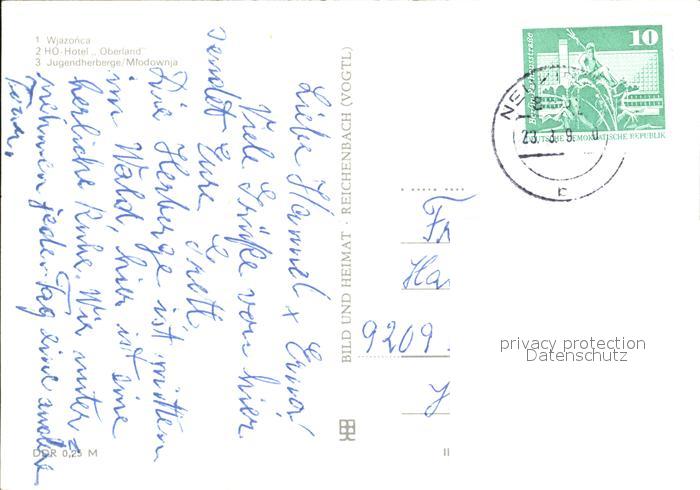 1 Wjazońca
2 HO-Hotel „Oberland"
3 Jugendherberge/Młodownja
Liebe Hannel x Erna!
Viele Grüße von hier
sendet Eure Gretl.
Die Herberge ist mitten
im Wald, hier ist eine
herrliche Ruhe. Wir unter=
nehmen jeden Tag eine andere
Tour.
BILD UND HEIMAT · REICHENBACH (VOGTL)
DDR 0,25 M
II
10
DEUTSCHE DEMOKRATISCHE REPUBLIK
Fr
Ha
9209
privacy protection
Datenschutz